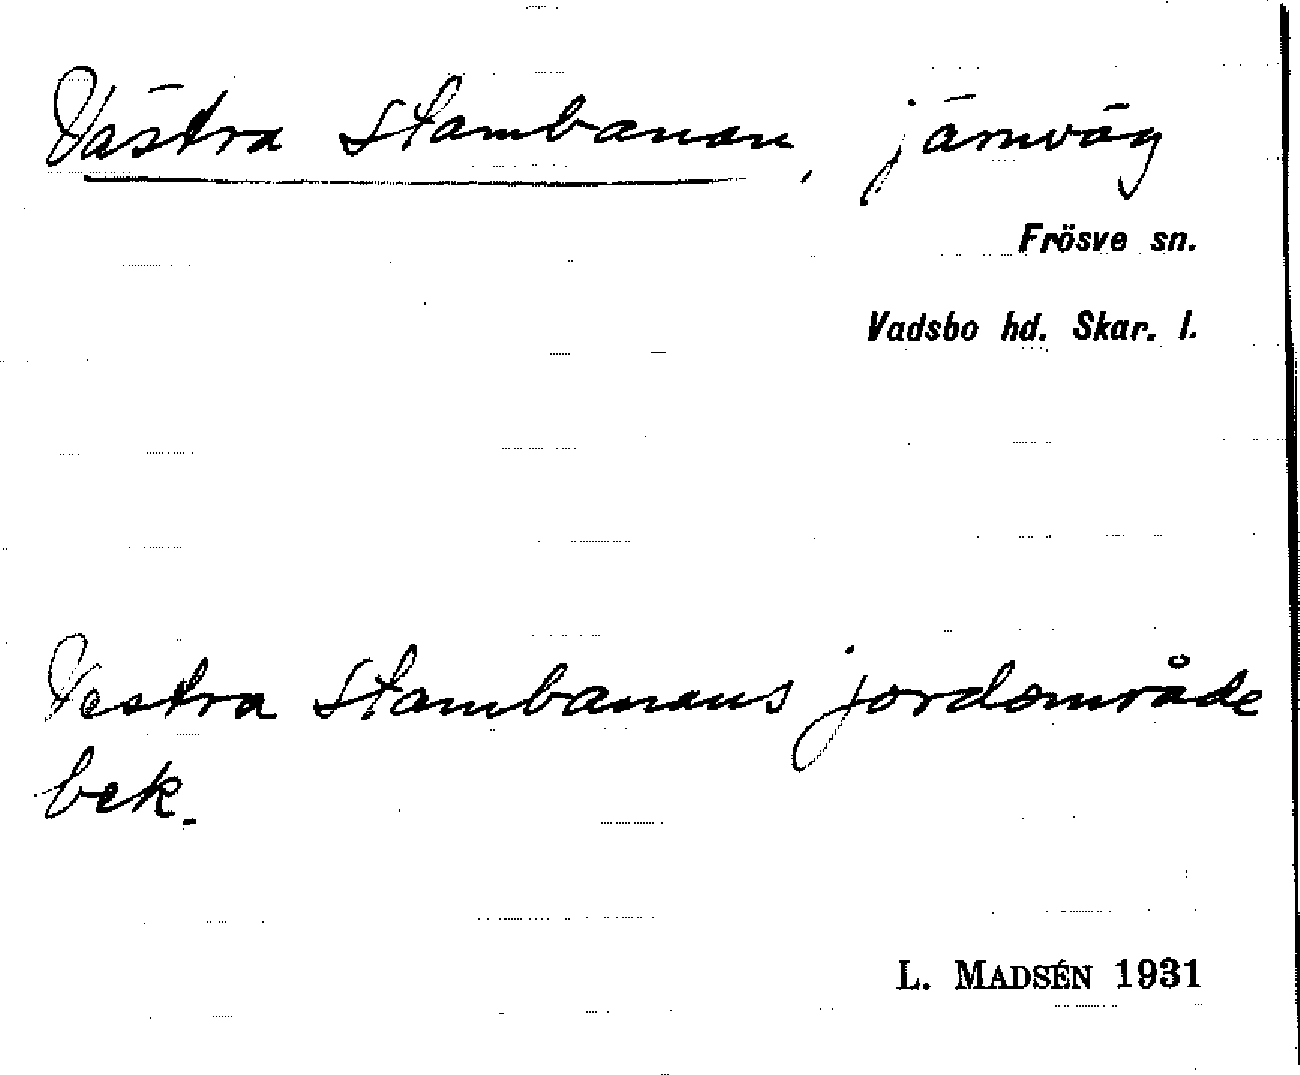 Västra Stambanan, järnväg
Frösve sn.
Vadsbo hd. Skar. l.
Vestra Stambanans jordområde
bek.
L. MADSÉN 1931